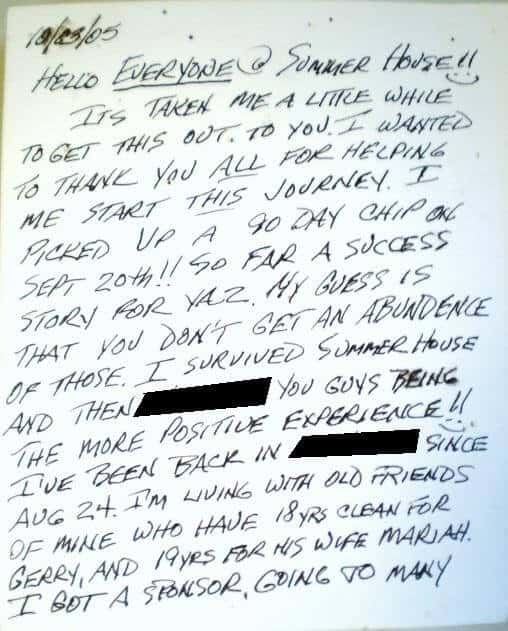 10/23/05
HELLO EVERYONE @ SUMMER HOUSE!!
ITS TAKEN ME A LITTLE WHILE
TO GET THIS OUT. TO YOU. I WANTED
TO THANK YOU ALL FOR HELPING
ME START THIS JOURNEY. I
PICKED UP A 90 DAY CHIP ON
SEPT 20th!! SO FAR A SUCCESS
STORY FOR YAZ. MY GUESS IS
THAT YOU DON'T GET AN ABUNDENCE
OF THOSE. I SURVIVED SUMMER HOUSE
AND THEN YOU GUYS BEING
THE MORE POSITIVE EXPERIENCE!!
I'VE BEEN BACK IN SINCE
AUG 24. I'M LIVING WITH OLD FRIENDS
OF MINE WHO HAVE 18YRS CLEAN FOR
GERRY, AND 19YRS FOR HIS WIFE MARIAH.
I GOT A SPONSOR, GOING TO MANY